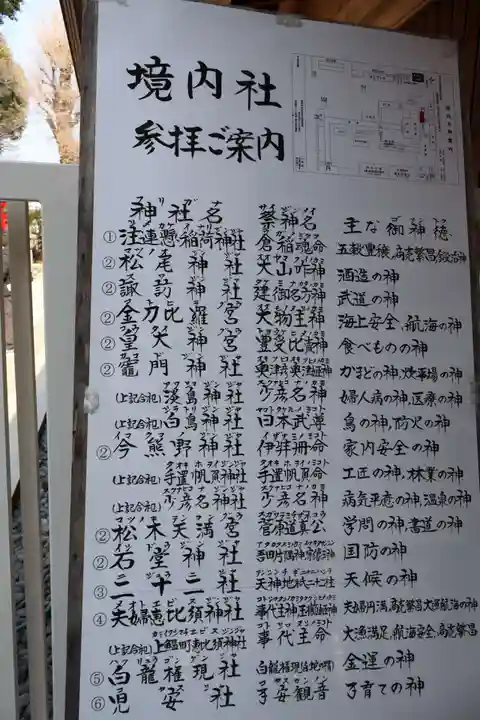 境内社
参拝ご案内
神社名 祭神名 主な御神徳
① 注連懸稲荷神社 倉稲魂命 五穀豊穣、商売繁昌、鍛冶の神
② 松尾神社 大山咋神 酒造の神
② 諏訪神社 建御名方神 武道の神
② 金刀比羅宮 大物主神 海上安全、航海の神
② 皇大神宮 豊受比賣神 食べものの神
② 竈門神社 かまどの神、炊事場の神
(上記合祀) 淡島神社 少彦名神 婦人病の神、医療の神
(上記合祀) 白鳥神社 日本武尊 鳥の神、防火の神
② 今熊野神社 伊弉冊命 家内安全の神
(上記合祀) 手置帆負神社 手置帆負命 工匠の神、林業の神
(上記合祀) 少彦名神社 少彦名神 病気平癒の神、温泉の神
② 松末天満宮 菅原道真公 学問の神、書道の神
② 石堂神社 国防の神
③ 二十二社 天神地祇二十二柱 天候の神
④ 夫婦恵比須神社 夫婦円満、商売繁昌、大漁航海の神
(上記合祀) 上鰯町恵比須神社 事代主命 大漁満足、航海安全、商売繁昌
⑤ 白龍権現社 白龍権現 金運の神
⑥ 児安社 子安観音 子育ての神